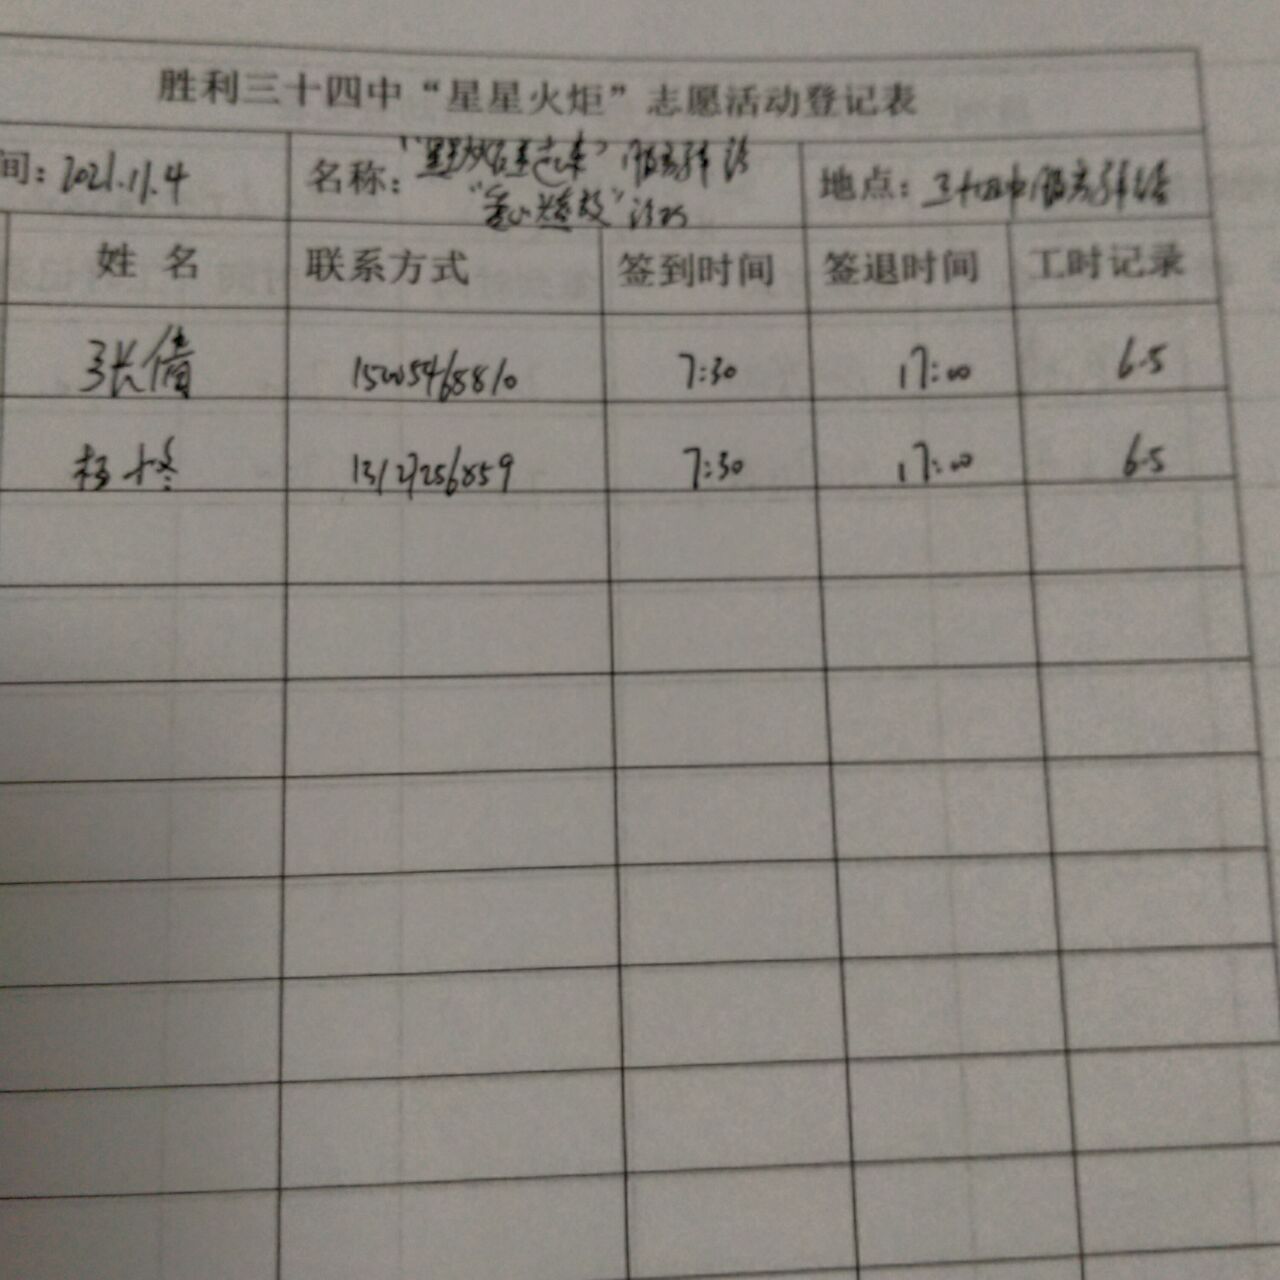 胜利三十四中“星星火炬”志愿活动登记表
间：2021.11.4 名称： 地点：三十四中
姓名 联系方式 签到时间 签退时间 工时记录
张倩 15005468810 7:30 17:00 6.5
杨柊 13127256859 7:30 17:00 6.5